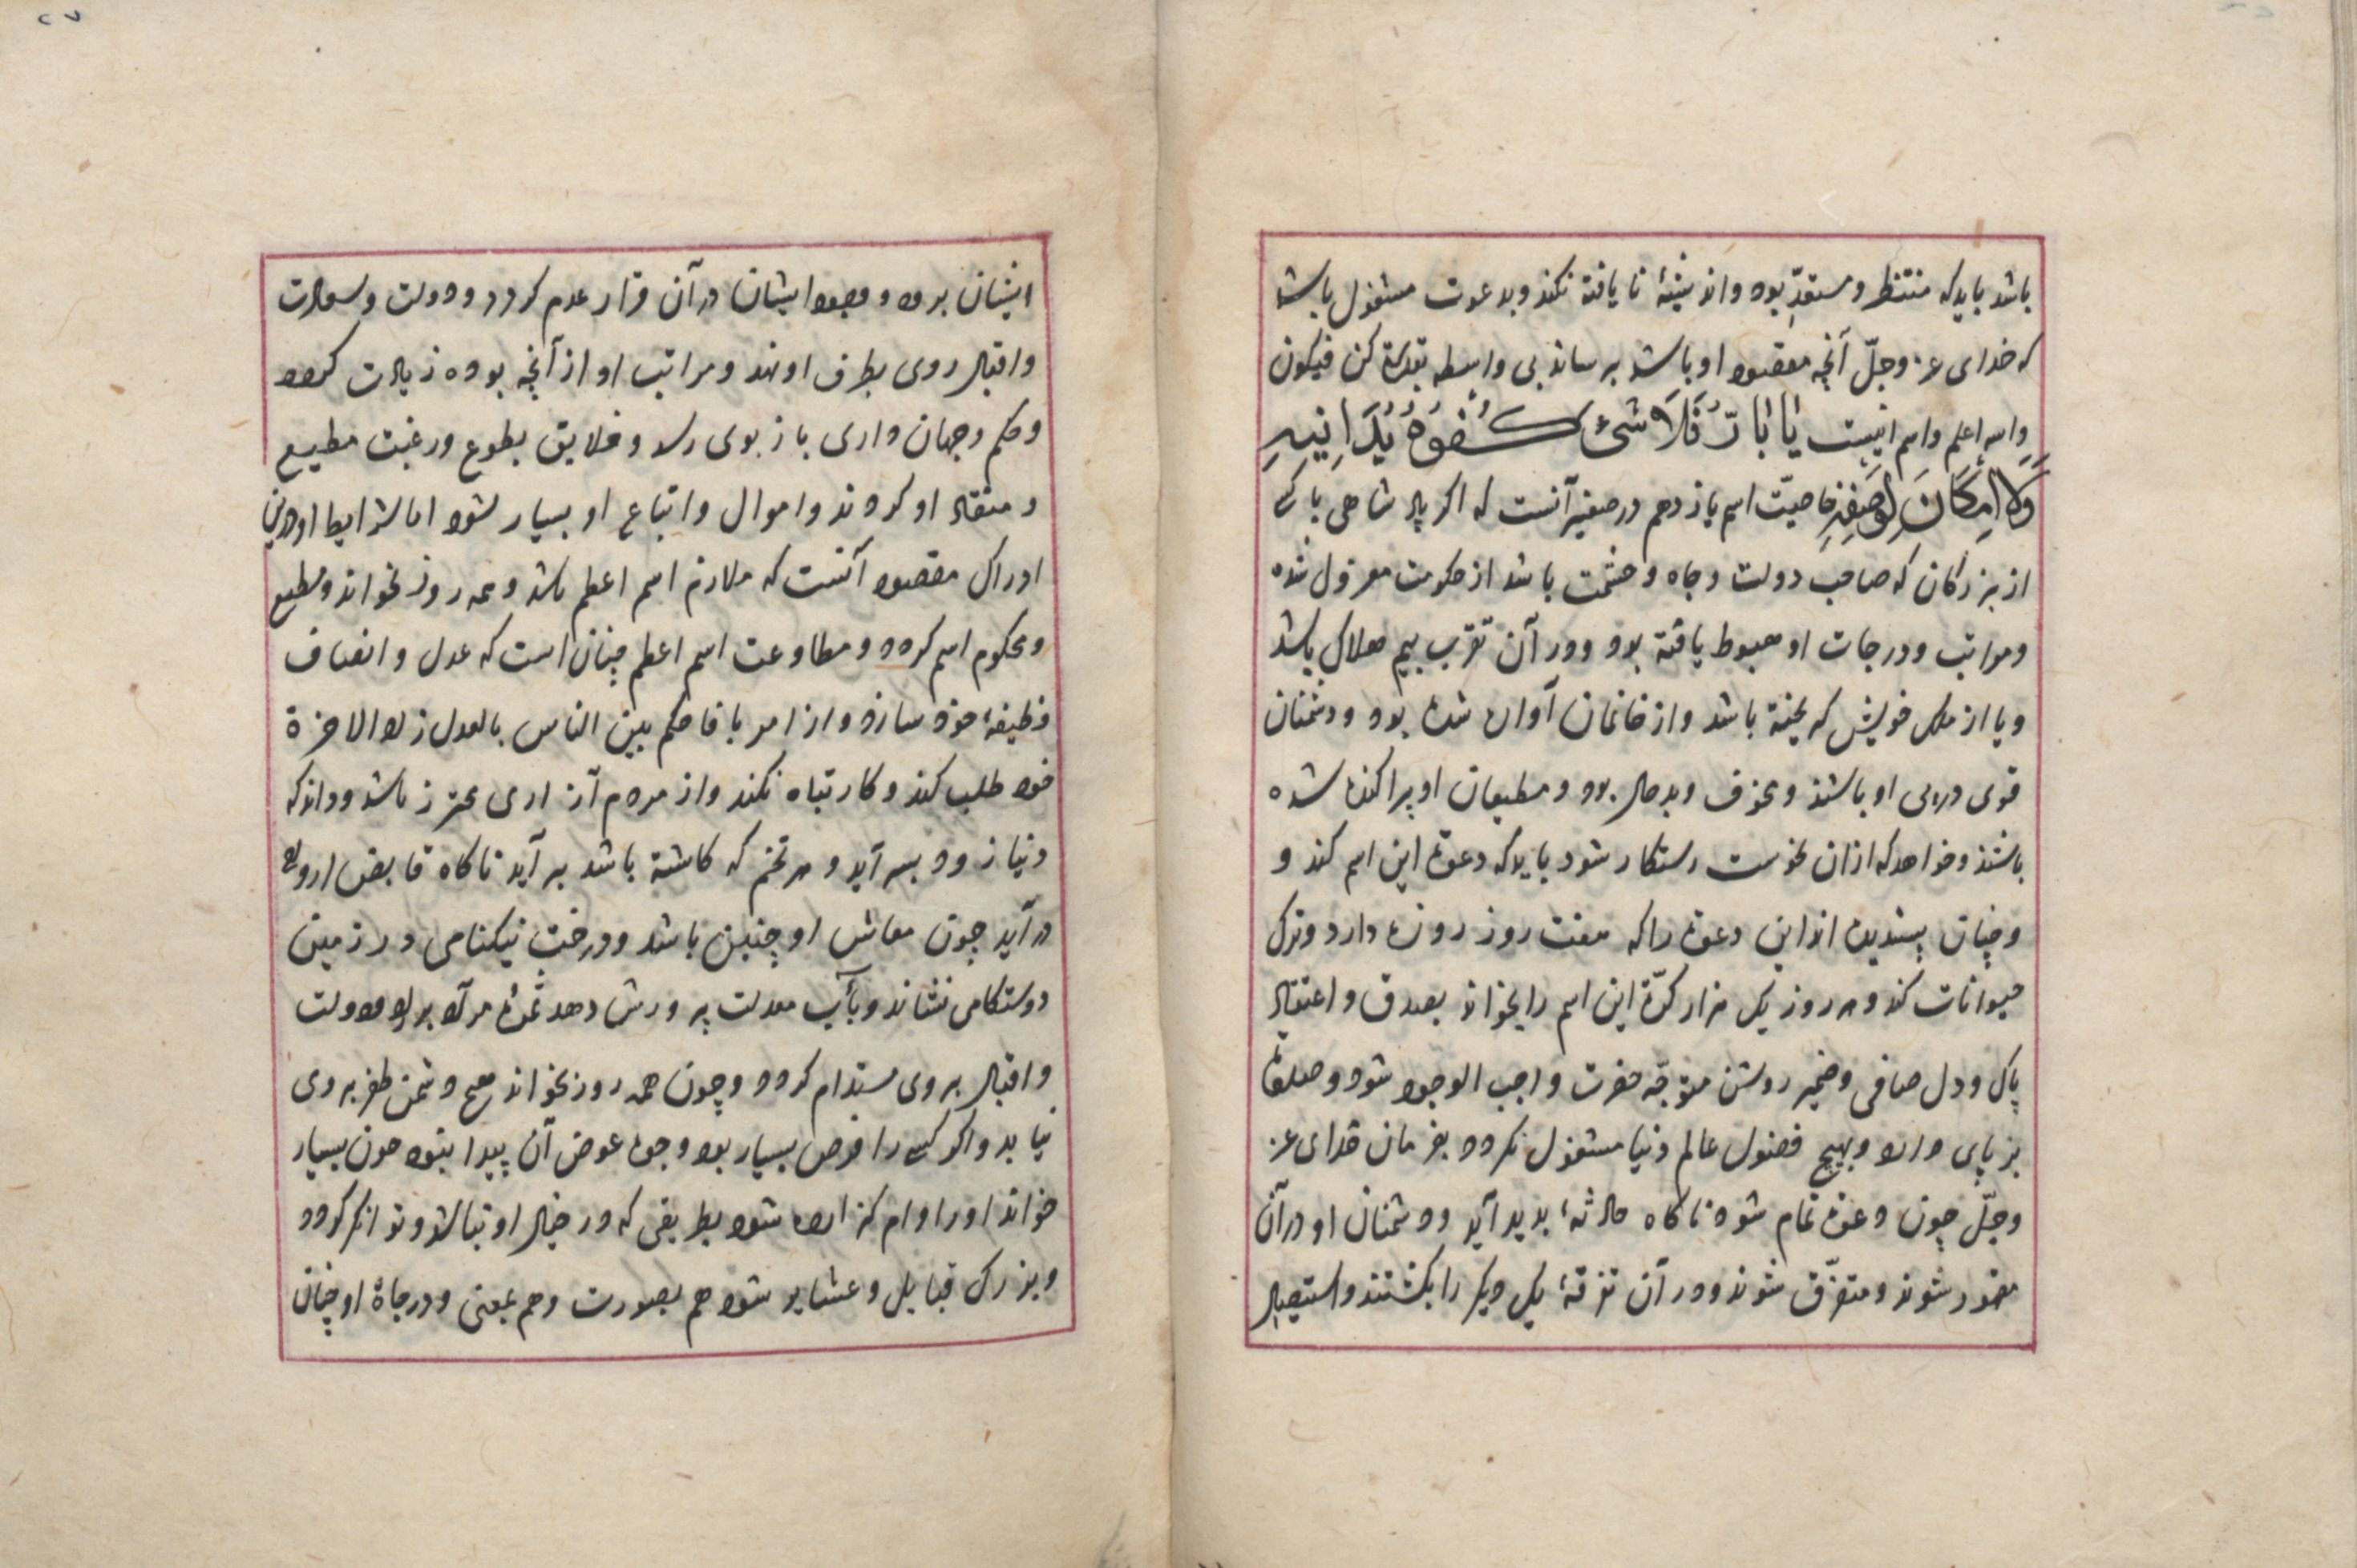 باشد باید که منتظر و مستعدّ بود و اندیشهٔ نا یافته نکند و بدعوت مشغول باشد
که خدای عز وجلّ آنچه مقصود او باشد برساند بی واسطه بقدرة کن فیکون
والله اعلم و اسم اینست یَا بَارُّ فَلَا شَیْءَ کُفُوهُ یُدَانِیهِ
وَلَا اِمْکَانَ لِوَصْفِهِ خاصیّت اسم یازدهم در صغیر آنست که اگر پادشاهی یا کسی
از بزرکان که صاحب دولت و جاه و حشمت باشد از حکومت معزول شده
و مراتب و درجات او هبوط یافته بود و در آن تقرب بیم هلاک باشد
و یا از ملک خویش کریخته باشد و از خانمان آواره شده بود و دشمنان
قوی در پی او باشند و بخوف و بدحال بود و مطیعان او پراکنده شده
باشند و خواهد که ازان نحوست رستکار شود باید که دعوة این اسم کند و
و چنان پسندیده اند این دعوة را که هفت روز روزه دارد و ترک
حیوانات کند و هر روز یک هزار کرّة این اسم را بخواند بصدق و اعتقاد
پاک و دل صافی و ضمیر روشن متوجّه حضرت واجب الوجود شود و
بر پای دارد و بهیچ فضول عالم دنیا مشغول نکردد بفرمان خدای عز
وجلّ چون دعوة تمام شود ناکاه حادثهٔ بدید آید و دشمنان او در آن
مقهور شوند و متفرّق شوند و در آن تفرقهٔ یک دیکر را بکشتند و استیصال
ایشان بود و وجود ایشان در آن قرار عدم کردد و دولت و سعادت
و اقبال روی بطرف او نهد و مراتب او از آنچه بوده زیادت کردد
و حکم و جهان داری باز بوی رسد و خلایق بطوع و رغبت مطیع
و منقاد او کردند و اموال و اتباع او بسیار شود اما شرایط او درین
ادراک مقصود آنست که ملازم اسم اعظم باشد و همه روز بخواند و مطیع
و محکوم اسم کردد و مطاوعت اسم اعظم چنان است که عدل و انصاف
وظیفهٔ خود سازد و از امر یا فاحکم بین الناس بالعدل زاد الاخرة
خود طلب کند و کار تباه نکند و از مردم آزاری محترز باشد و داند که
دنیا زود بسر آید و هر تخم که کاشته باشد بر آید ناکاه قابض ارواح
در آید چون معاش او چنین باشد و درخت نیکنامی در زمین
دوستکامی نشاند و بآب معدلت پرورش دهد ثمرهٔ مراد بر دهد و دولت
و اقبال بر وی مستدام کردد و چون همه روز بخواند هیچ دشمن ظفر بر وی
نیابد و اکر کسی را قرض بسیار بود و وجوه عوض آن پیدا نبود چون بسیار
خواند او را وام کزارده شود بطریقی که در خیال او نباشد و توانکر کردد
و بزرک قبایل و عشایر شود هم بصورت و هم بمعنی و درجاة او چنان